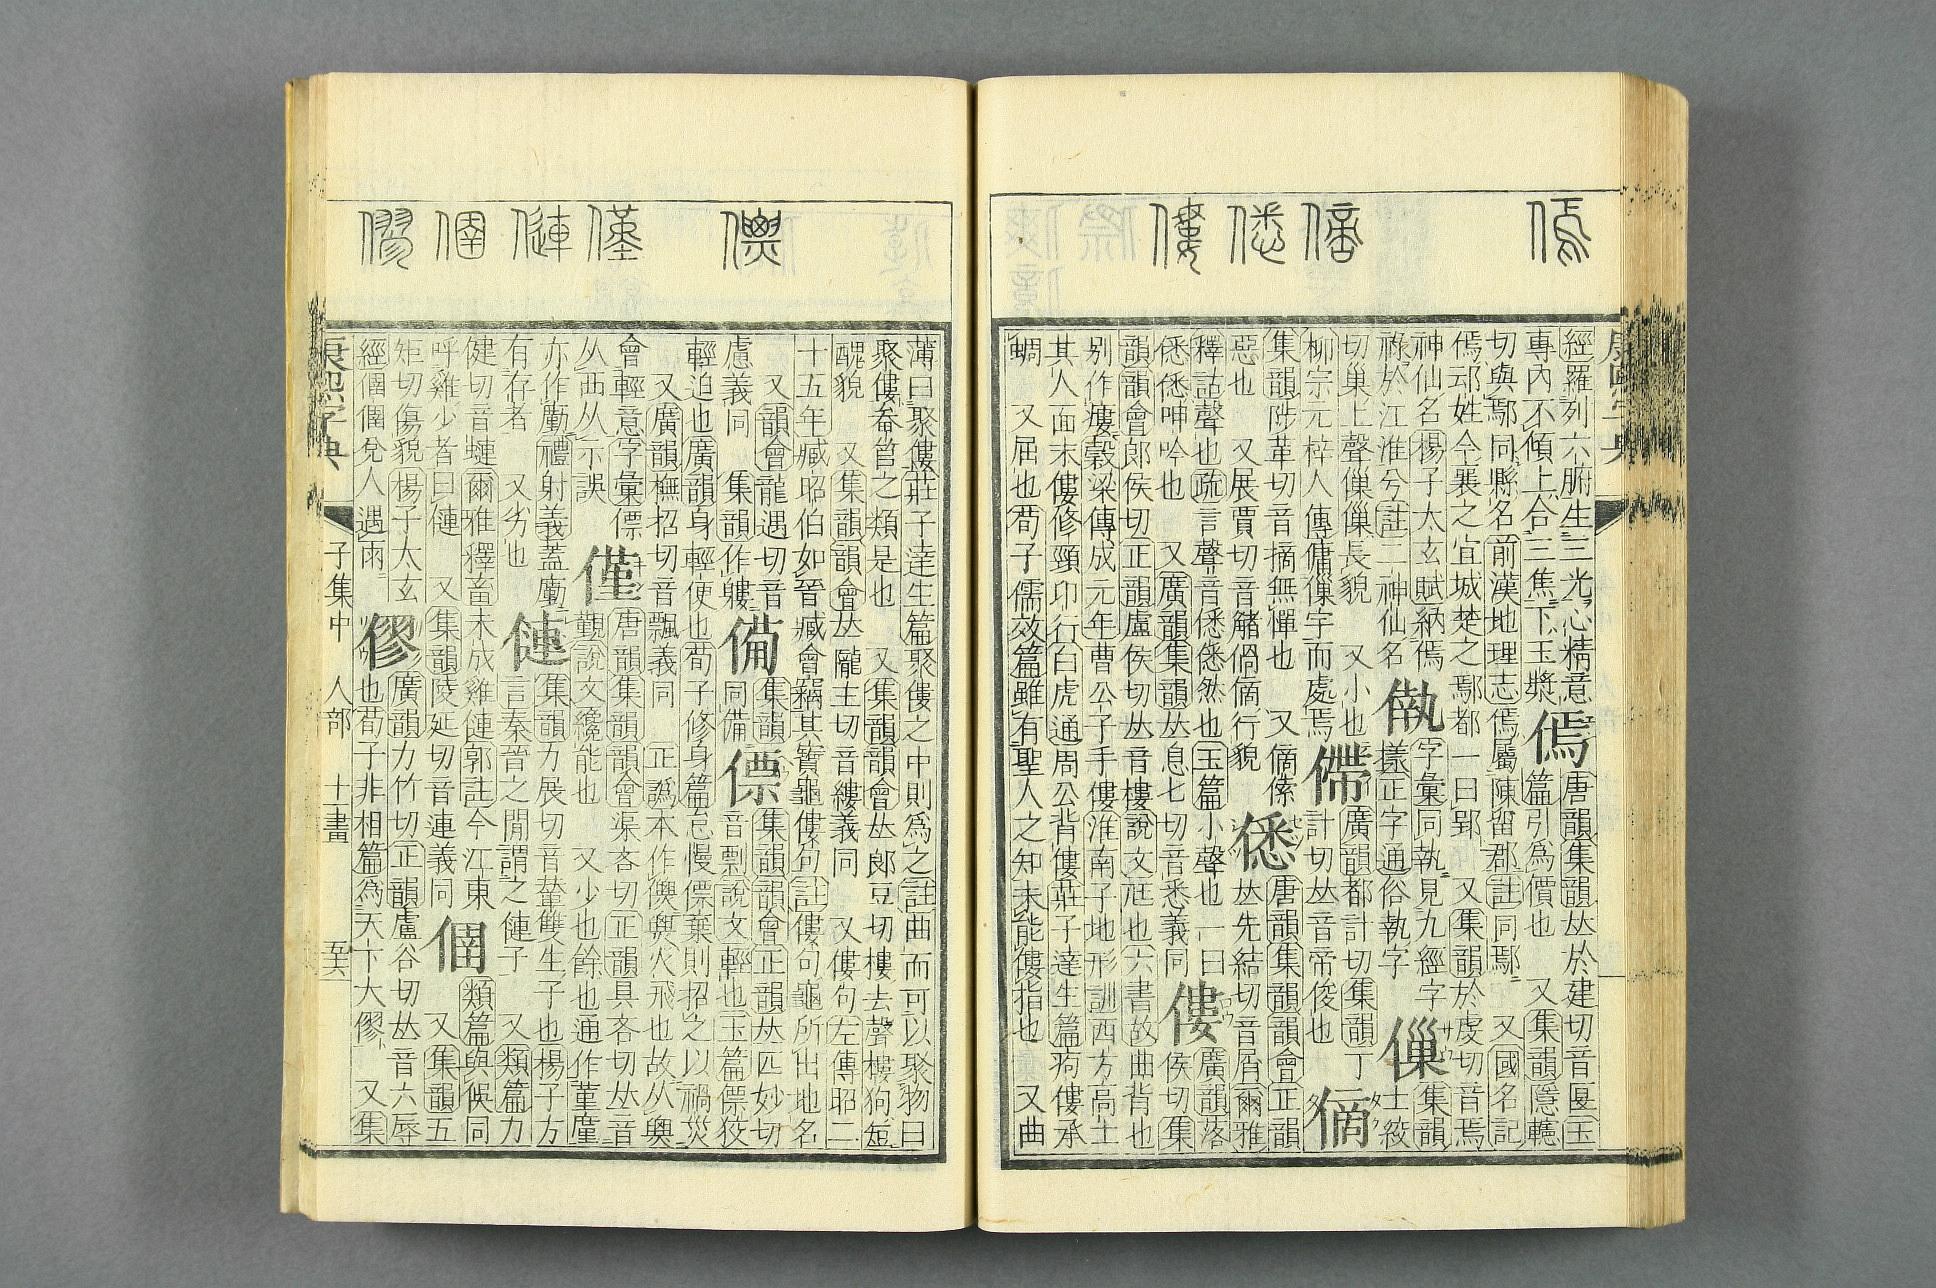 傿 僁 僂
經羅列六腑生三光心精意傿唐韻集韻𠀤於建切音匽玉
專內不傾上合三焦下玉漿篇引爲價也 又集韻隱幰
切與鄢同縣名前漢地理志傿屬陳留郡註同鄢 又國名記
傿邧姓今襄之宜城楚之鄢都一曰郢 又集韻於虔切音焉
神仙名楊子太玄賦納傿字彙同執見九經字集韻
祿於江淮兮註二神仙名樣正字通俗執字士絞
切巢上聲長貌 又小也僀廣韻都計切集韻丁
柳宗元梓人傳傭字而處焉計切𠀤音帝俊也
集韻陟革切音摘無憚也 又傃僁唐韻集韻韻會正韻
惡也 又展賈切音觰行貌𠀤先結切音屑爾雅
釋詁聲也疏言聲音僁僁然也玉篇小聲也一曰僂廣韻落
僁僁呻吟也 又廣韻集韻𠀤息七切音悉義同侯切集
韻韻會郎侯切正韻盧侯切𠀤音樓說文尫也六書故曲背也
别作㾤穀梁傳成元年曹公子手僂淮南子地形訓西方高土
其人面末僂修頸卬行白虎通周公背僂莊子達生篇痀僂承
蜩 又屈也荀子儒效篇雖有聖人之知未能僂指也 又曲
僄 僅 僆 僇
薄曰聚僂莊子達生篇聚僂之中則爲之註曲而可以聚物曰
聚僂畚筥之類是也 又集韻韻會𠀤郎豆切樓去聲㺏狗短
醜貌 又集韻韻會𠀤隴主切音縷義同 又僂句左傳昭二
十五年臧昭伯如晉臧會竊其寶龜僂句註僂句龜所出地名
又韻會龍遇切音僃集韻僄集韻韻會正韻𠀤匹妙切
慮義同 集韻作軁同備音剽說文輕也玉篇僄狡
輕迫也廣韻身輕便也荀子修身篇怠慢僄棄則招之以禍災
又廣韻撫招切音飄義同 正譌本作僄火飛也故从
會輕意字彙僄僅唐韻集韻韻會渠吝切正韻具吝切𠀤音
从西从示誤覲說文纔能也 又少也餘也通作堇廑
亦作勵禮射義蓋廑僆集韻力展切音輦雙生子也楊子方
有存者 又劣也言秦晉之閒謂之僆子 又類篇力
健切音𨏩爾雅釋畜未成雞僆郭註今江東類篇與俁同
呼雞少者曰僆 又集韻陵延切音連義同 又集韻五
矩切傷貌楊子太玄僇廣韻力竹切正韻盧谷切𠀤音六辱
經兌人遇雨也荀子非相篇爲天下大僇 又集
康熙字典 子集中 人部 十一畫 五十六